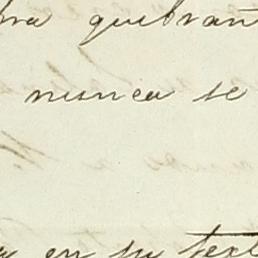 quebran
nunca se
en su text